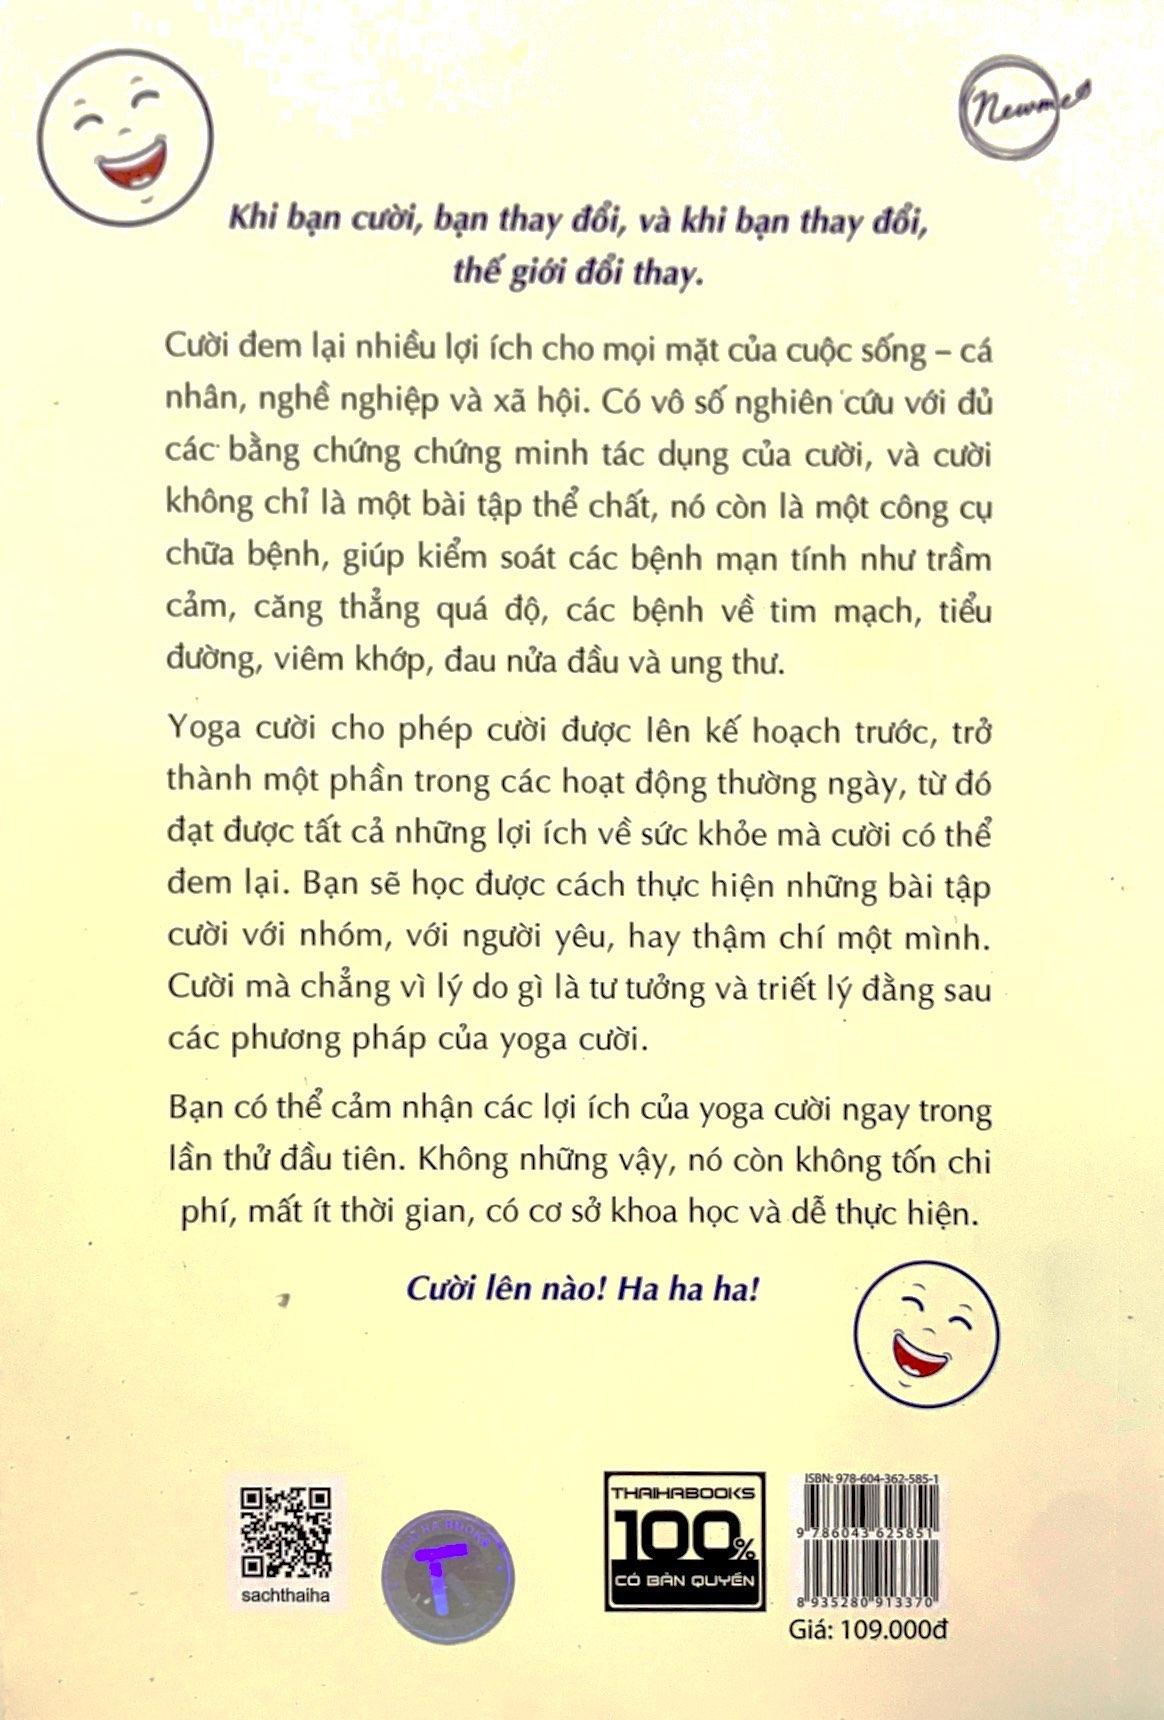 Newme
Khi bạn cười, bạn thay đổi, và khi bạn thay đổi,
thế giới đổi thay.
Cười đem lại nhiều lợi ích cho mọi mặt của cuộc sống – cá
nhân, nghề nghiệp và xã hội. Có vô số nghiên cứu với đủ
các bằng chứng chứng minh tác dụng của cười, và cười
không chỉ là một bài tập thể chất, nó còn là một công cụ
chữa bệnh, giúp kiểm soát các bệnh mạn tính như trầm
cảm, căng thẳng quá độ, các bệnh về tim mạch, tiểu
đường, viêm khớp, đau nửa đầu và ung thư.
Yoga cười cho phép cười được lên kế hoạch trước, trở
thành một phần trong các hoạt động thường ngày, từ đó
đạt được tất cả những lợi ích về sức khỏe mà cười có thể
đem lại. Bạn sẽ học được cách thực hiện những bài tập
cười với nhóm, với người yêu, hay thậm chí một mình.
Cười mà chẳng vì lý do gì là tư tưởng và triết lý đằng sau
các phương pháp của yoga cười.
Bạn có thể cảm nhận các lợi ích của yoga cười ngay trong
lần thử đầu tiên. Không những vậy, nó còn không tốn chi
phí, mất ít thời gian, có cơ sở khoa học và dễ thực hiện.
Cười lên nào! Ha ha ha!
sachthaiha
HA BOOKS
T
THAIHABOOKS
100%
CÓ BẢN QUYỀN
ISBN: 978-604-362-585-1
9 786043 625851
8 935280 913370
Giá: 109.000đ